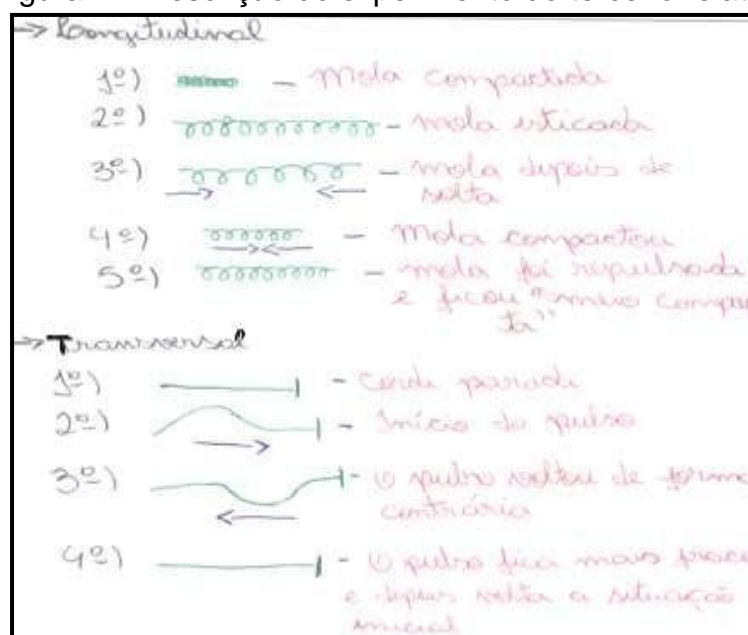 → Longitudinal
1º) - Mola compactada
2º) - mola esticada
3º) - mola depois de
solta
4º) - Mola compactou
5º) - mola foi repulsada
e ficou "meio compac
ta"
→ Transversal
1º) - Corda parada
2º) - Início do pulso
3º) - O pulso voltou de forma
contrária
4º) - O pulso fica mais fraco
e depois volta a situação
inicial